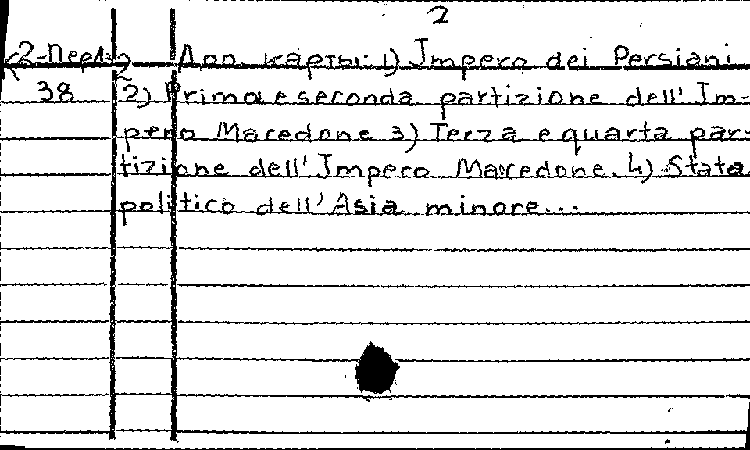 2
К2-Перед Доп. карты: 1) Impero dei Persiani
38 2) Prima e seconda partizione dell' Im-
pero Macedone 3) Terza e quarta par-
tizione dell' Impero Macedone. 4) Stato
politico dell' Asia minore...